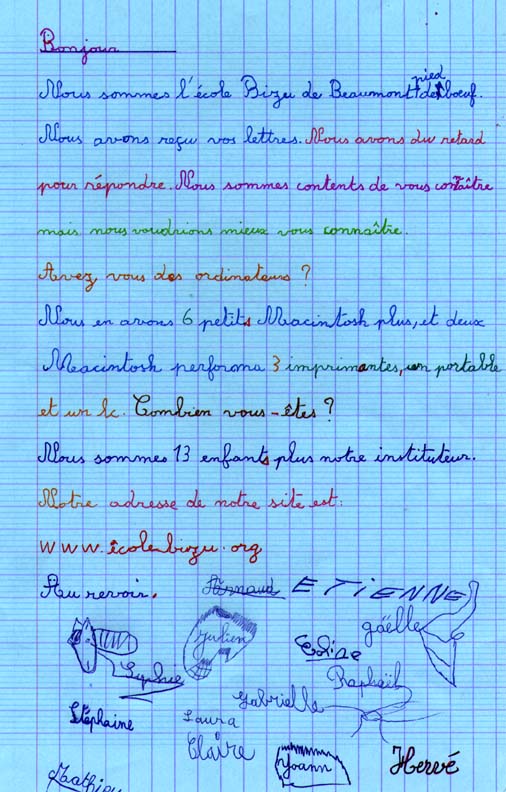 Bonjour
Nous sommes l'école Bizu de Beaumont pied de boeuf.
Nous avons reçu vos lettres. Nous avons du retard
pour répondre. Nous sommes contents de vous connaître
mais nous voudrions mieux vous connaître.
Avez vous des ordinateurs ?
Nous en avons 6 petits Macintosh plus, et deux
Macintosh performa 3 imprimantes, un portable
et un lc. Combien vous-êtes ?
Nous sommes 13 enfants plus notre instituteur.
Notre adresse de notre site est:
www.écolebizu.org
Au revoir.
Arnaud ETIENNE
Julien gaëlle
Sophie Elise
Raphaël
Gabrielle
Stéphaine Laura
Claire Yoann Hervé
Mathieu